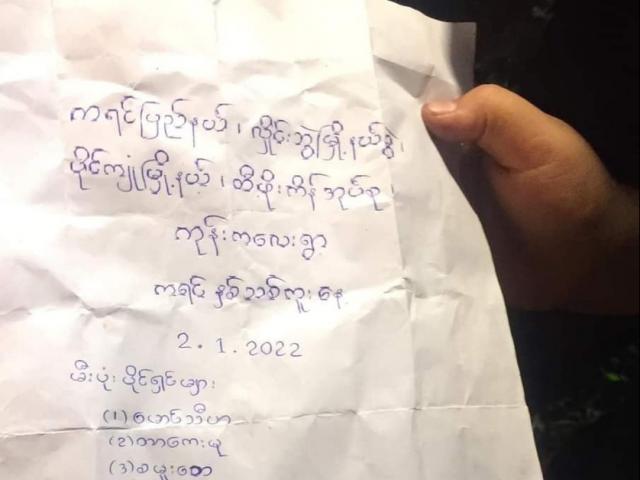 ကရင်ပြည်နယ်၊ လှိုင်းဘွဲမြို့နယ်ခွဲ၊
ပိုင်ကျုံမြို့နယ်၊ တီဖိုးကိန်အုပ်စု၊
ကုန်းကလေးရွာ
ကရင် နှစ်သစ်ကူး နေ့
2.1.2022
မီးပုံး ပိုင်ရှင်များ
(၁) မောင်သီဟ
(2)
(3)